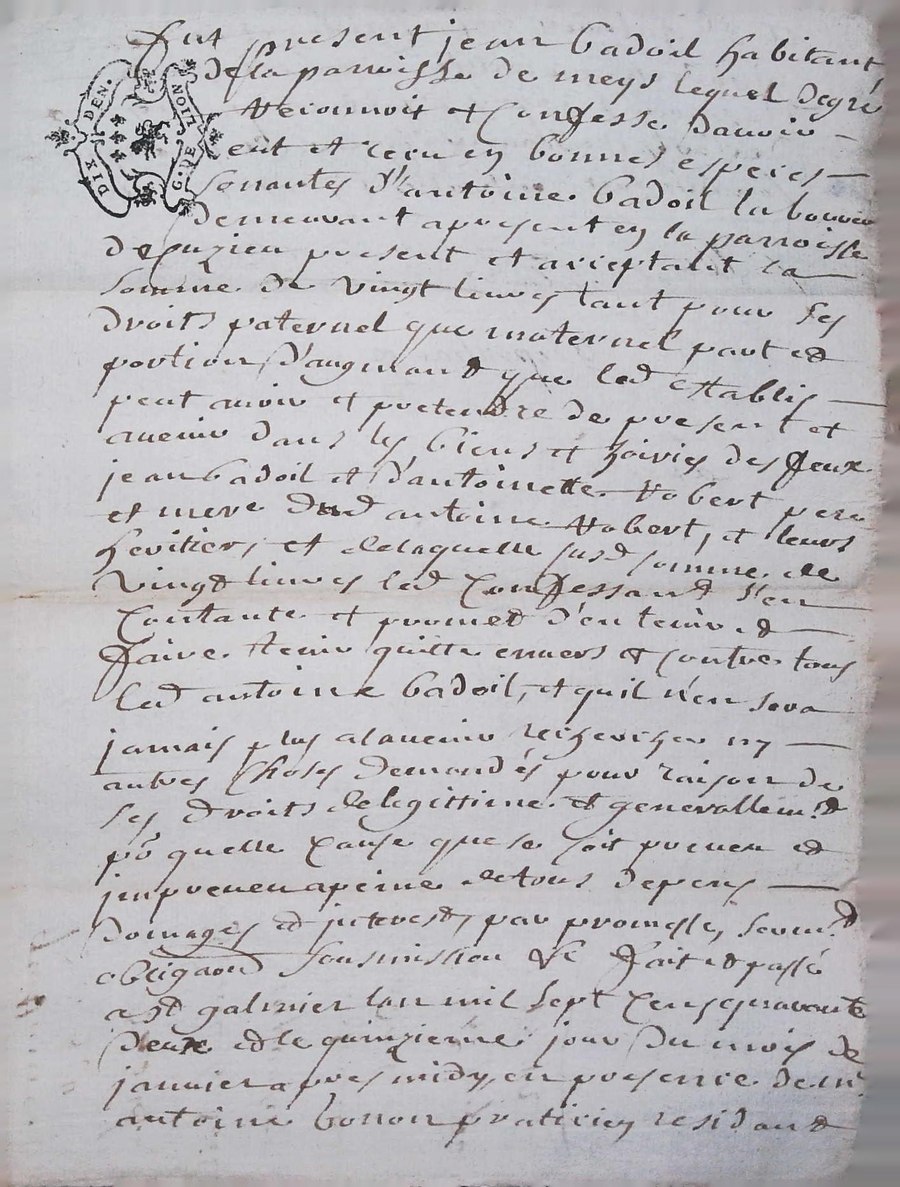 DIX DEN.
G. DE LION
Fut present jean badoil habitant
de la parroisse de meys lequel de gré
reconnoit et Confesse d'avoir
eut et recu en bonnes especes
sonnantes d'antoine badoil laboureur
demeurant apresent en la parroisse
de Cuzieu present et acceptant la
somme de vingt livres tant pour ses
droits paternel que maternel part et
portion d'augmant que led establis
peut avoir et pretendre de present et
avenir dans les biens et hoiries des feux
jean badoil et d'antoinette Robert pere
et mere dud antoine Robert, et leurs
heritiers, et delaquelle susd somme de
vingt livres led Confessant s'en
Contante et promet d'en tenir et
faire tenir quitte envers et contre tous
led antoine badoil, et quil n'en sera
jamais plus alavenir rechercher ny
autres Choses demandés pour raison de
ses droits de legittime et generallemt
po quelle Cause que se soit preveu et
jnpreveu apeine de tous depens
domages et jnterest, par promesse, sermt
obligaon sousmission &c fait et passé
a st galmier lan mil sept Cens quarante
deux et le quinzieme jour du mois de
janvier apres midy, en presence de mr
antoine bonon praticien residant